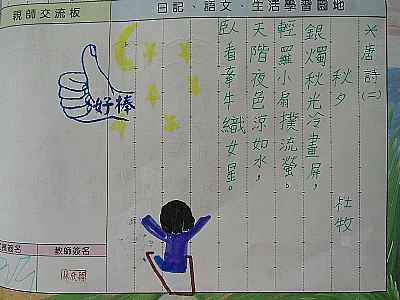 親師交流板
日記、語文、生活學習園地
唐詩(二)
秋夕 杜牧
銀燭秋光冷畫屏，
輕羅小扇撲流螢。
天階夜色涼如水，
臥看牽牛織女星。
好棒
教師簽名